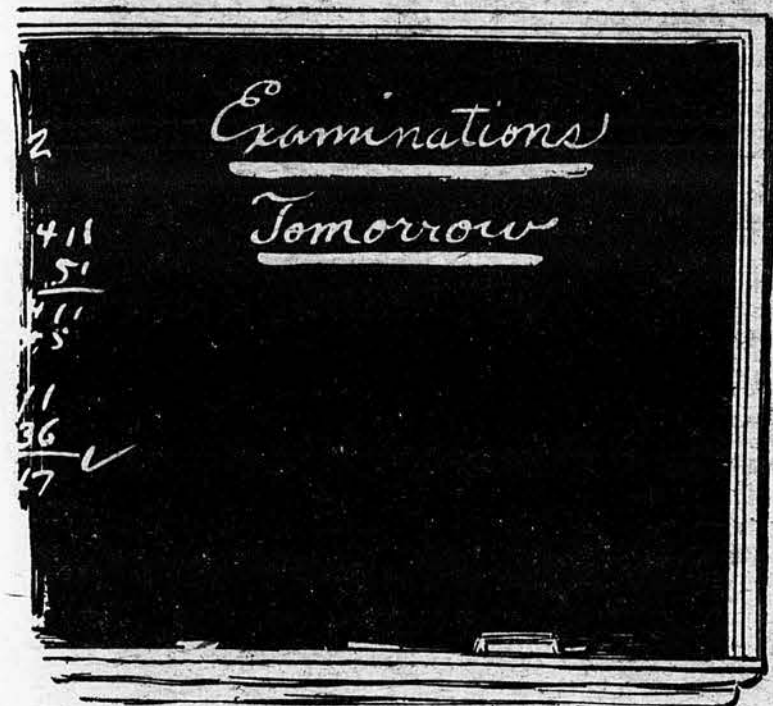 Examinations
Tomorrow
2
411
51
411
11
36
17